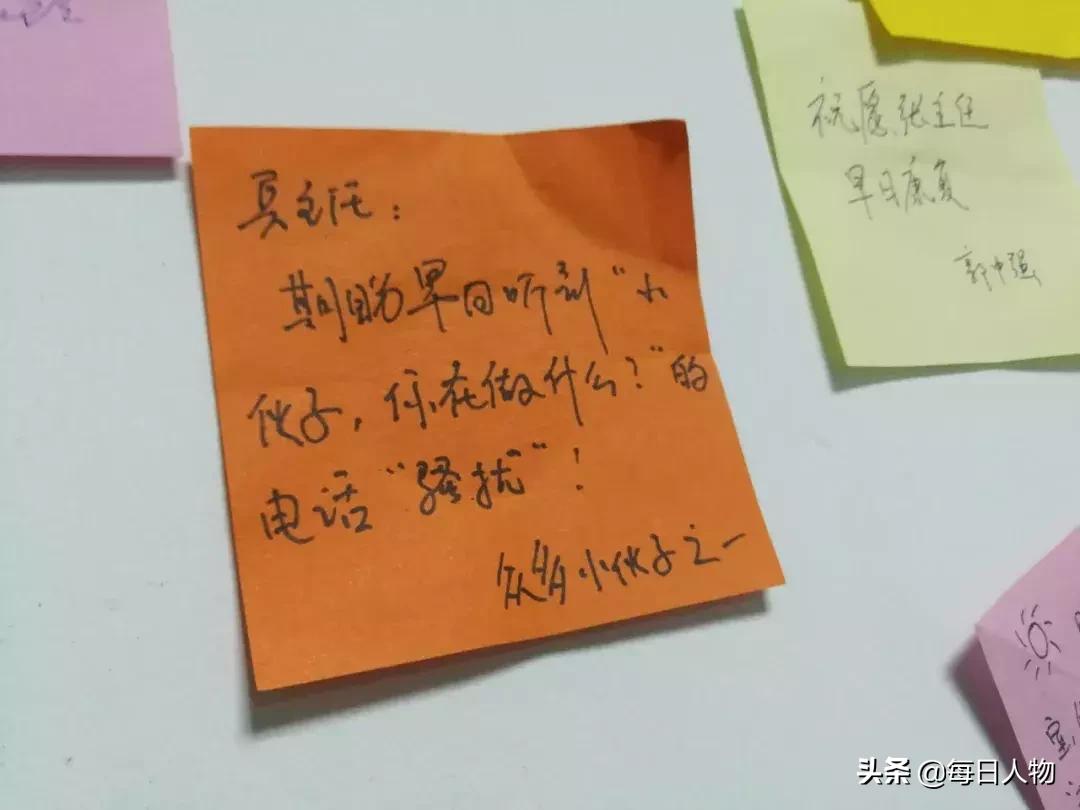 主任：
期盼早日听到“小
伙子，你在做什么？”的
电话“骚扰”！
众多小伙子之一
祝愿张主任
早日康复
郭中强
头条 @每日人物